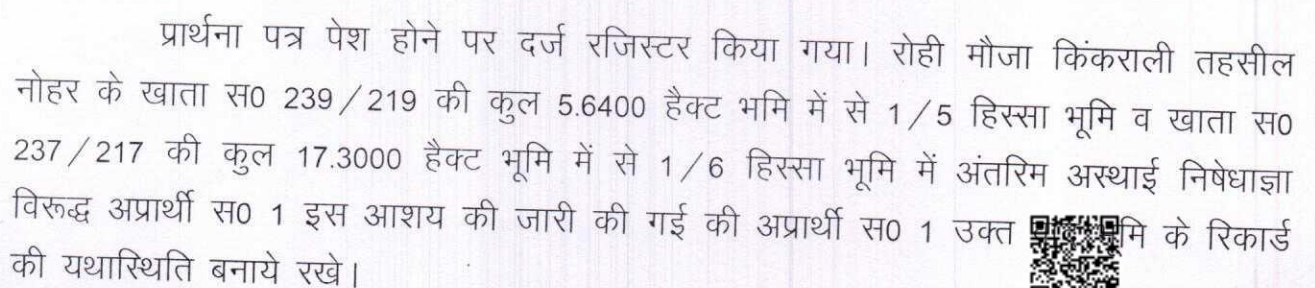 प्रार्थना पत्र पेश होने पर दर्ज रजिस्टर किया गया। रोही मौजा किंकराली तहसील
नोहर के खाता स0 239/219 की कुल 5.6400 हैक्ट भमि में से 1/5 हिस्सा भूमि व खाता स0
237/217 की कुल 17.3000 हैक्ट भूमि में से 1/6 हिस्सा भूमि में अंतरिम अस्थाई निषेधाज्ञा
विरूद्ध अप्रार्थी स0 1 इस आशय की जारी की गई की अप्रार्थी स0 1 उक्त के रिकार्ड
की यथास्थिति बनाये रखे।